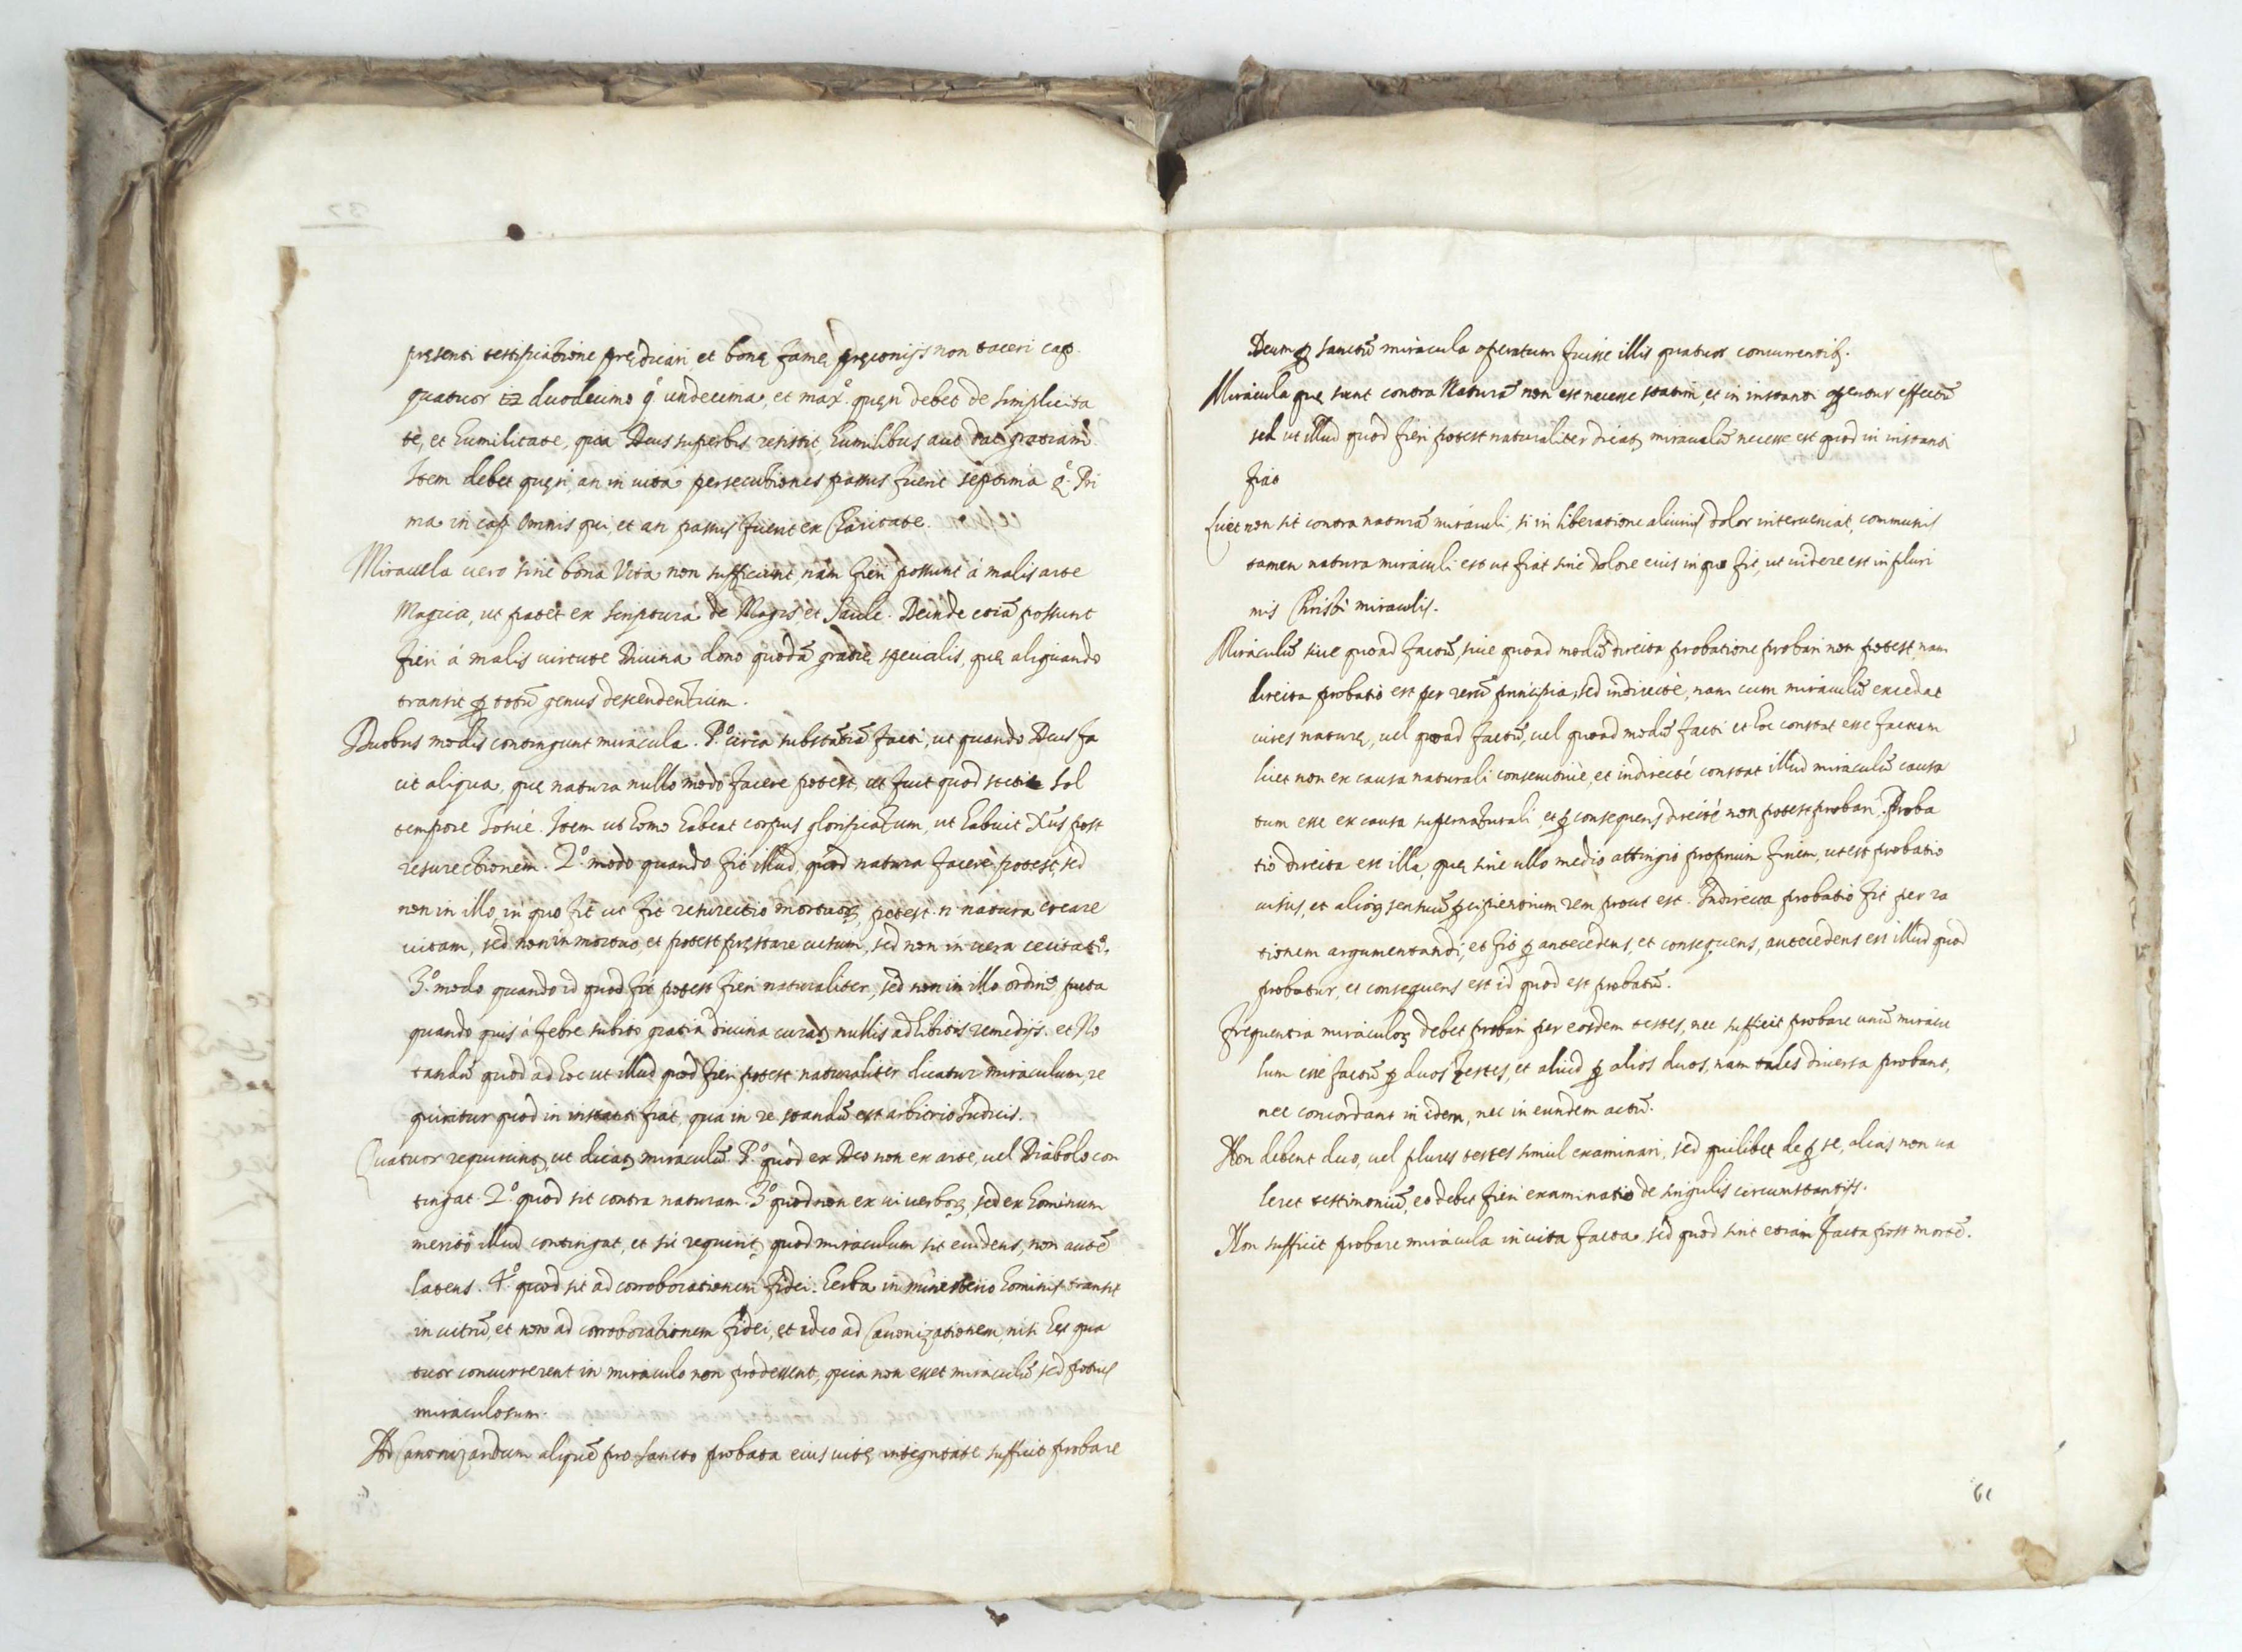 pręsenti testificatione prędicari, et bonę famę pręconijs non taceri cap.
quatuor duodecimo q̊ undecima, et max̊. quęri debet de simplicita
te, et humilitate, quia Deus superbis resistit, humilibus aut dat gratiam
Item debet quęri, an in vita persecutiones passus fuerit septima q̊. Pri
ma in cap. Omnis qui, et an passus fuerit ex Charitate.
Miracula vero sine bona Vita non sufficiunt, nam fieri possunt á malis arte
Magica, ut patet ex scriptura de Magis, et Saule. Deinde etiā possunt
fieri á malis virtute Divina dono quodā gratię specialis, quę aliquando
transit ꝑ totū genus descendentium.
Duobus modis contingunt miracula. P.º circa substātiā facti, ut quando Deus fa
cit aliqua, quę natura nullo modo facere potest, ut fuit quod stetit Sol
tempore Iosué. Item ut homo habeat corpus glorificatum, ut habuit Xūs post
resurectionem. 2.º modo quando fit illud, quod natura facere potest, sed
non in illo, in quo fit ut fit resurectio mortuoꝝ, potest .n. natura creare
vitam, sed non in mortuo, et potest pręstare visum, sed non in vera cecitate.
3.º modo quando id quod fit potest fieri naturaliter, sed non in illo ordine, puta
quando quis á febre subito gratia divina curatꝫ nullis adhibitis remedijs. et No
tandū quod ad hoc ut illud quod fieri potest naturaliter dicatur miraculum, re
quiritur quod in instanti fiat, qua in re standū est arbitrio Iudicis.
Quatuor requirunt, ut dicatꝫ miraculū. P.º quod ex Deo non ex arte, vel Diabolo con
tingat. 2.º quod sit contra naturam. 3.º quod non ex vi verboꝝ, sed ex hominum
merito illud contingat, et sic requirit, quod miraculum sit evidens, non autē
latens. 4.º quod sit ad corroborationem fidei. herba in ministerio hominis transit
in vitrū, et non ad corroborationem fidei, et ideo ad Canonizationem, nisi hęc qua
tuor concurrerent in miraculo non prodessent, quia non esset miraculū, sed potius
miraculosum.
Ad Canonizandum aliquē pro Sancto probata eius vitę integritate sufficit probare
Deum ꝑ sanctū miracula operatum fuisse illis quatuor concurrentib.
Miracula quę sunt contra Naturā non est necesse statim, et in instanti operentur effectū
sed ut illud quod fieri potest naturaliter dicatꝫ miraculū necesse est quod in instanti
fiat
Licet non sit contra naturā miraculi, si in liberatione alicuius dolor interveniat, communis
tamen natura miraculi est ut fiat sine dolore eius in quo fit, ut videre est in pluri
mis Christi miraculis.
Miraculū sive quoad factū, sive quoad modū directa probatione probari non potest, nam
directa probatio est per rerū principia, sed indirecté, nam cum miraculū excedat
vires naturę, vel quoad factū, vel quoad modū facti et hoc constat esse factum
licet non ex causa naturali et indirecté constat illud miraculū causa
tum esse ex causa supernaturali, et ꝑ consequens directé non potest probari. Proba
tio directa est illa, quę sine ullo medio attingit proprium finem, ut est probatio
visus, et alioꝝ sensuū ꝑcipientium rem prout est. Indirecta probatio fit per ra
tionem argumentandi, et fit ꝑ antecedens, et consequens, antecedens est illud quod
probatur, et consequens est id quod est probatū.
Frequentia miraculoꝝ debet probari per eosdem testes, nec sufficit probare unū miracu
lum esse factū ꝑ duos testes, et aliud ꝑ alios duos, nam tales diversa probant,
nec concordant in idem, nec in eundem actū.
Non debent duo, vel plures testes simul examinari, sed quilibet de ꝑ se, alias non va
leret testimoniū, et debet fieri examinatio de singulis circumstantijs.
Non sufficit probare miracula in vita facta, sed quod sint etiam facta post mortē.
61